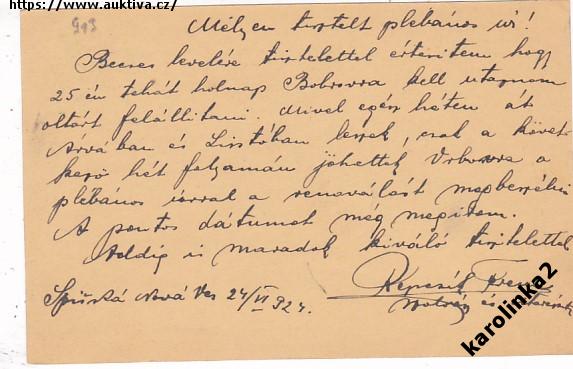 https://www.auktiva.cz/
Mélyen tisztelt plébános úr!
Becses levelére tisztelettel értesitem hogy
25 én tehát holnap Bobrovra kell utaznom
oltárt felállitani. Mivel egész héten át
Arvában és leszek, csak a követ-
kező hét folyamán jöhettek Vrbovra a
plébános úrral a renoválást megbeszélni
A pontos dátumot még megirom.
Addig is maradok kiváló tisztelettel
Spišská Nová Ves 24/VI 924.
és
karolinka2